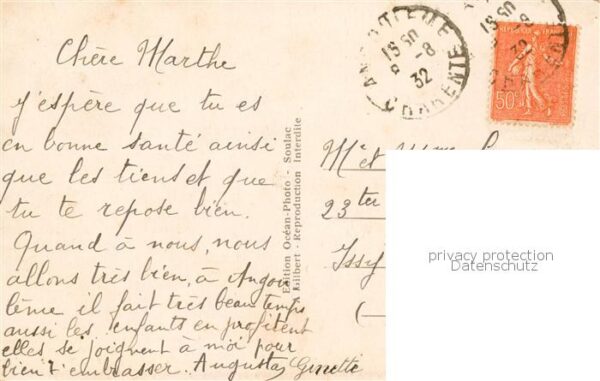 Chère Marthe
J'espère que tu es
en bonne santé ainsi
que les tiens et que
tu te repose bien.
Quand à nous, nous
allons très bien, à Angou
lême il fait très beau temps
aussi les enfants en profitent
elles se joignent à moi pour
bien t'embrasser. Augusta Ginette
Edition Océan-Photo - Soulac
Gilbert - Reproduction Interdite
ANGOULEME
18 50
8-8
32
CHARENTE
18 50
-8
32
50c
M. et Mme
23 ter
Issy
privacy protection
Datenschutz